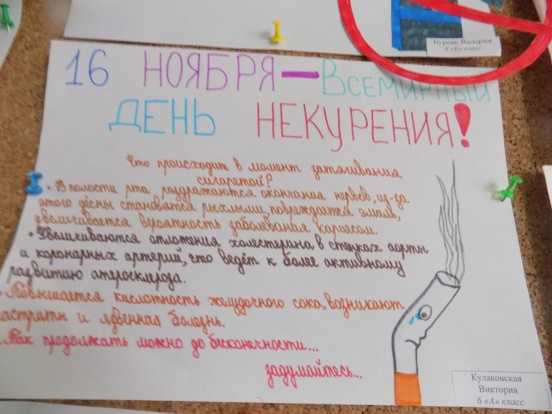 16 НОЯБРЯ — ВСЕМИРНЫЙ
ДЕНЬ НЕКУРЕНИЯ!
Что происходит в момент затягивания
сигаретой?
• В полости рта, раздражаются окончания нервов, из-за
этого дёсны становятся рыхлыми, повреждается эмаль,
увеличивается вероятность заболевания кариесом.
• Увеличиваются отложения холестерина в стенках аорты
и коронарных артерий, что ведёт к более активному
развитию атеросклероза.
• Повышается кислотность желудочного сока, возникают
гастриты и язвенная болезнь.
Так продолжать можно до бесконечности...
задумайтесь...
Кулаковская
Виктория
6 «А» класс